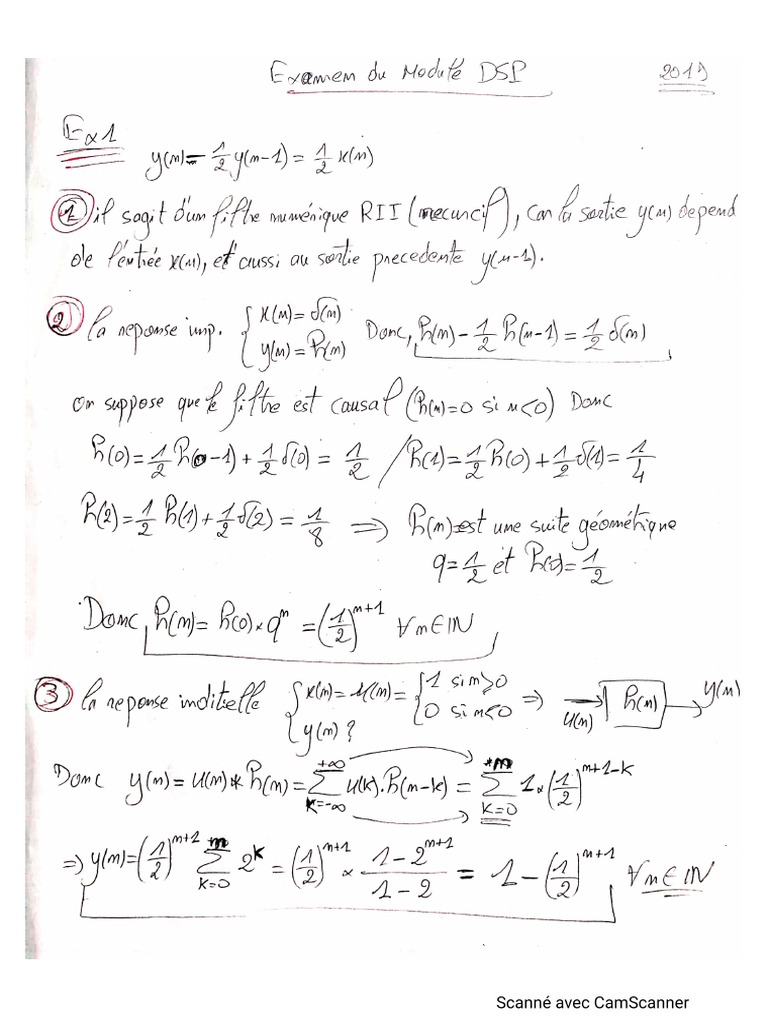 Examen du Module DSP 2019
Ex1
y(n) - 1/2 y(n-1) = 1/2 x(n)
① il sagit d'un filtre numérique RII (recursif), car la sortie y(n) depend
de l'entrée x(n), et aussi au sortie precedente y(n-1).
② la reponse imp. { x(n) = δ(n) ; y(n) = h(n) Donc, h(n) - 1/2 h(n-1) = 1/2 δ(n)
On suppose que le filtre est causal (h(n)=0 si n<0) Donc
h(0) = 1/2 h(0-1) + 1/2 δ(0) = 1/2 / h(1) = 1/2 h(0) + 1/2 δ(1) = 1/4
h(2) = 1/2 h(1) + 1/2 δ(2) = 1/8 ⇒ h(n) est une suite géométique
q = 1/2 et h(0) = 1/2
Donc, h(n) = h(0) × q^n = (1/2)^(n+1) ∀n∈IN
③ la reponse inditielle { x(n) = u(n) = { 1 si n≥0 ; 0 si n<0 ; y(n) ? ⇒ u(n) → h(n) → y(n)
Donc y(n) = u(n) * h(n) = Σ_{k=-∞}^{+∞} u(k).h(n-k) = Σ_{k=0}^{n} 1×(1/2)^(n+1-k)
⇒ y(n) = (1/2)^(n+1) Σ_{k=0}^{n} 2^k = (1/2)^(n+1) × (1-2^(n+1))/(1-2) = 1 - (1/2)^(n+1) ∀n∈IN
Scanné avec CamScanner